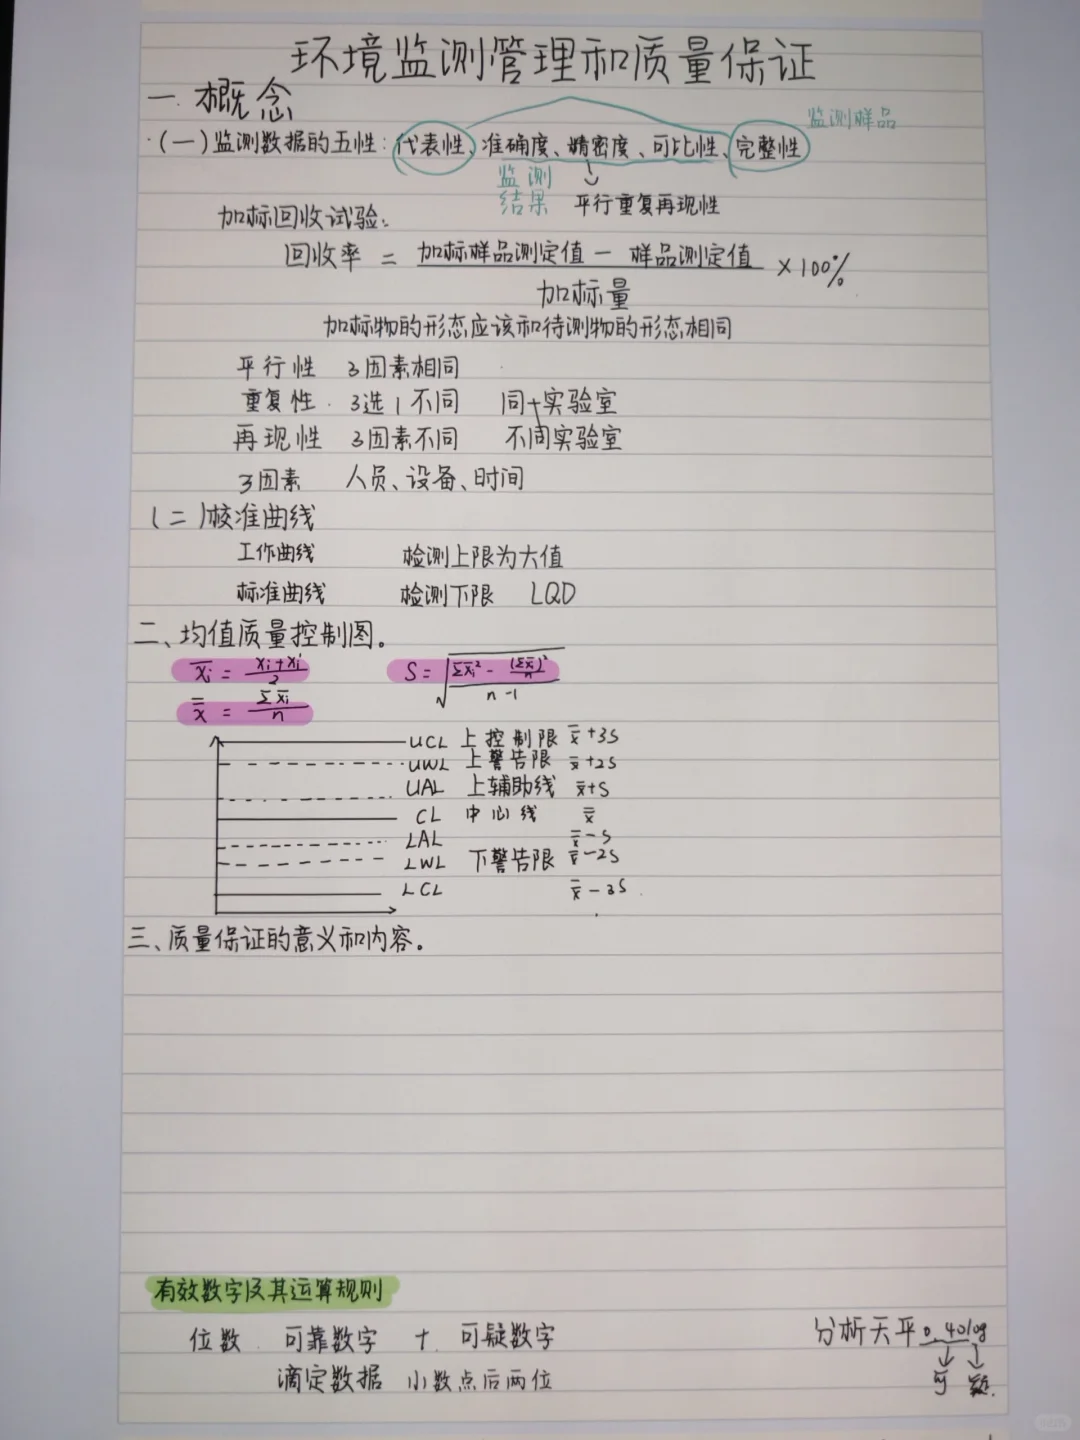 环境监测管理和质量保证
一. 概念
监测样品
(一)监测数据的五性: 代表性、准确度、精密度、可比性、完整性
监测
结果 平行重复再现性
加标回收试验:
回收率 = 加标样品测定值 - 样品测定值 ×100%
加标量
加标物的形态应该和待测物的形态相同
平行性 3因素相同
重复性 3选1不同 同一实验室
再现性 3因素不同 不同实验室
3因素 人员、设备、时间
(二)校准曲线
工作曲线 检测上限为大值
标准曲线 检测下限 LQD
二、均值质量控制图。
x̄i = (xi+xi')/2 S = √((Σx̄i² - (Σx̄i)²/n)/(n-1))
x̿ = Σx̄i/n
UCL 上控制限 x̿+3S
UWL 上警告限 x̿+2S
UAL 上辅助线 x̿+S
CL 中心线 x̿
LAL x̿-S
LWL 下警告限 x̿-2S
LCL x̿-3S
三、质量保证的意义和内容。
有效数字及其运算规则
位数 可靠数字 + 可疑数字 分析天平0.4010g
滴定数据 小数点后两位 可 疑.